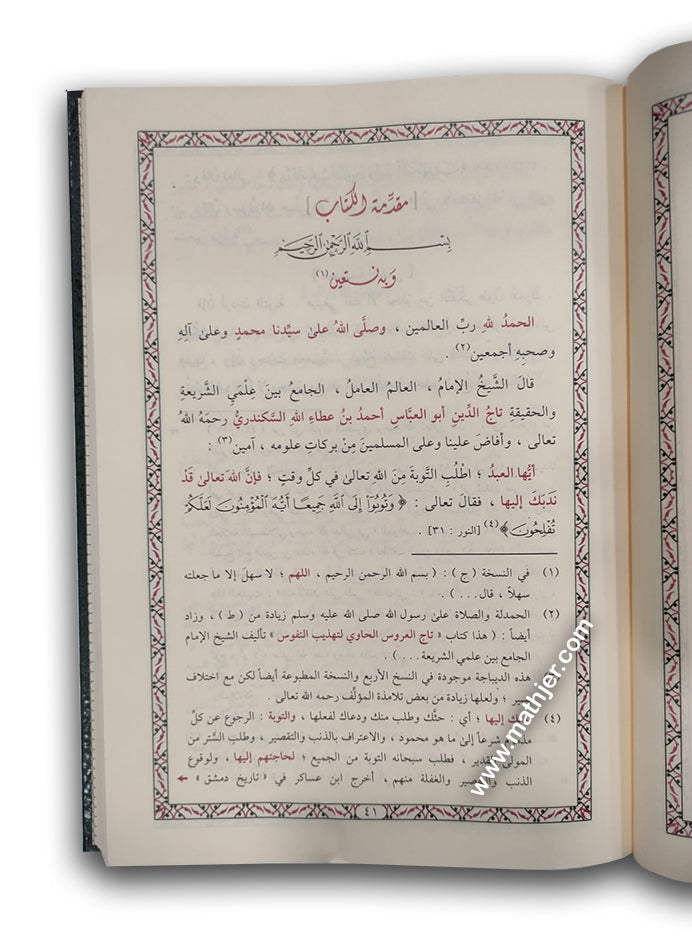 [ مقدِّمة الكتاب ]
بِسْمِ اللَّهِ الرَّحْمَنِ الرَّحِيمِ
وَبِهِ نستعين (١)
الحمدُ للهِ ربِّ العالمين ، وصلَّى اللهُ علىٰ سيِّدنا محمدٍ وعلىٰ آلِهِ
وصحبِهِ أجمعين(٢) .
قالَ الشَّيخُ الإمامُ ، العالمُ العاملُ ، الجامعُ بينَ عِلْمَيِ الشَّريعةِ
والحقيقةِ تاجُ الدِّينِ أبو العبَّاسِ أحمدُ بنُ عطاءِ اللهِ السَّكندريُّ رحمَهُ اللهُ
تعالى ، وأفاضَ علينا وعلى المسلمينَ مِنْ بركاتِ علومه ، آمين(٣) :
أيُّها العبدُ ؛ اطْلُبِ التَّوبةَ مِنَ اللهِ تعالىٰ في كلِّ وقتٍ ؛ فإنَّ اللهَ تعالىٰ قَدْ
نَدَبَكَ إليها ، فقالَ تعالى : ﴿ وَتُوبُوٓا۟ إِلَى ٱللَّهِ جَمِيعًا أَيُّهَ ٱلْمُؤْمِنُونَ لَعَلَّكُمْ
تُفْلِحُونَ ﴾(٤) [النور : ٣١] .
(١) في النسخة ( ج ) : ( بسم الله الرحمن الرحيم ، اللهم ؛ لا سهلَ إلا ما جعلته
سهلاً ، قال . . . ) .
(٢) الحمدلة والصلاة علىٰ رسول الله صلى الله عليه وسلم زيادة من ( ط ) ، وزاد
أيضاً : ( هذا كتاب « تاج العروس الحاوي لتهذيب النفوس » تأليف الشيخ الإمام
الجامع بين علمي الشريعة . . . ) .
هذه الديباجة موجودة في النسخ الأربع والنسخة المطبوعة أيضاً لكن مع اختلاف
؛ ولعلها زيادة من بعض تلامذة المؤلِّف رحمه الله تعالى .
(٤) إليها ؛ أي : حثَّك وطلب منك ودعاك لفعلها ، والتوبة : الرجوع عن كلِّ
شرعاً إلىٰ ما هو محمود ، والاعتراف بالذنب والتقصير ، وطلب السَّتر من
المولى ، فطلب سبحانه التوبة من الجميع ؛ لحاجتهم إليها ، ولوقوع
الذنب والغفلة منهم ، أخرج ابن عساكر في « تاريخ دمشق »
٤١
www.mathjer.com